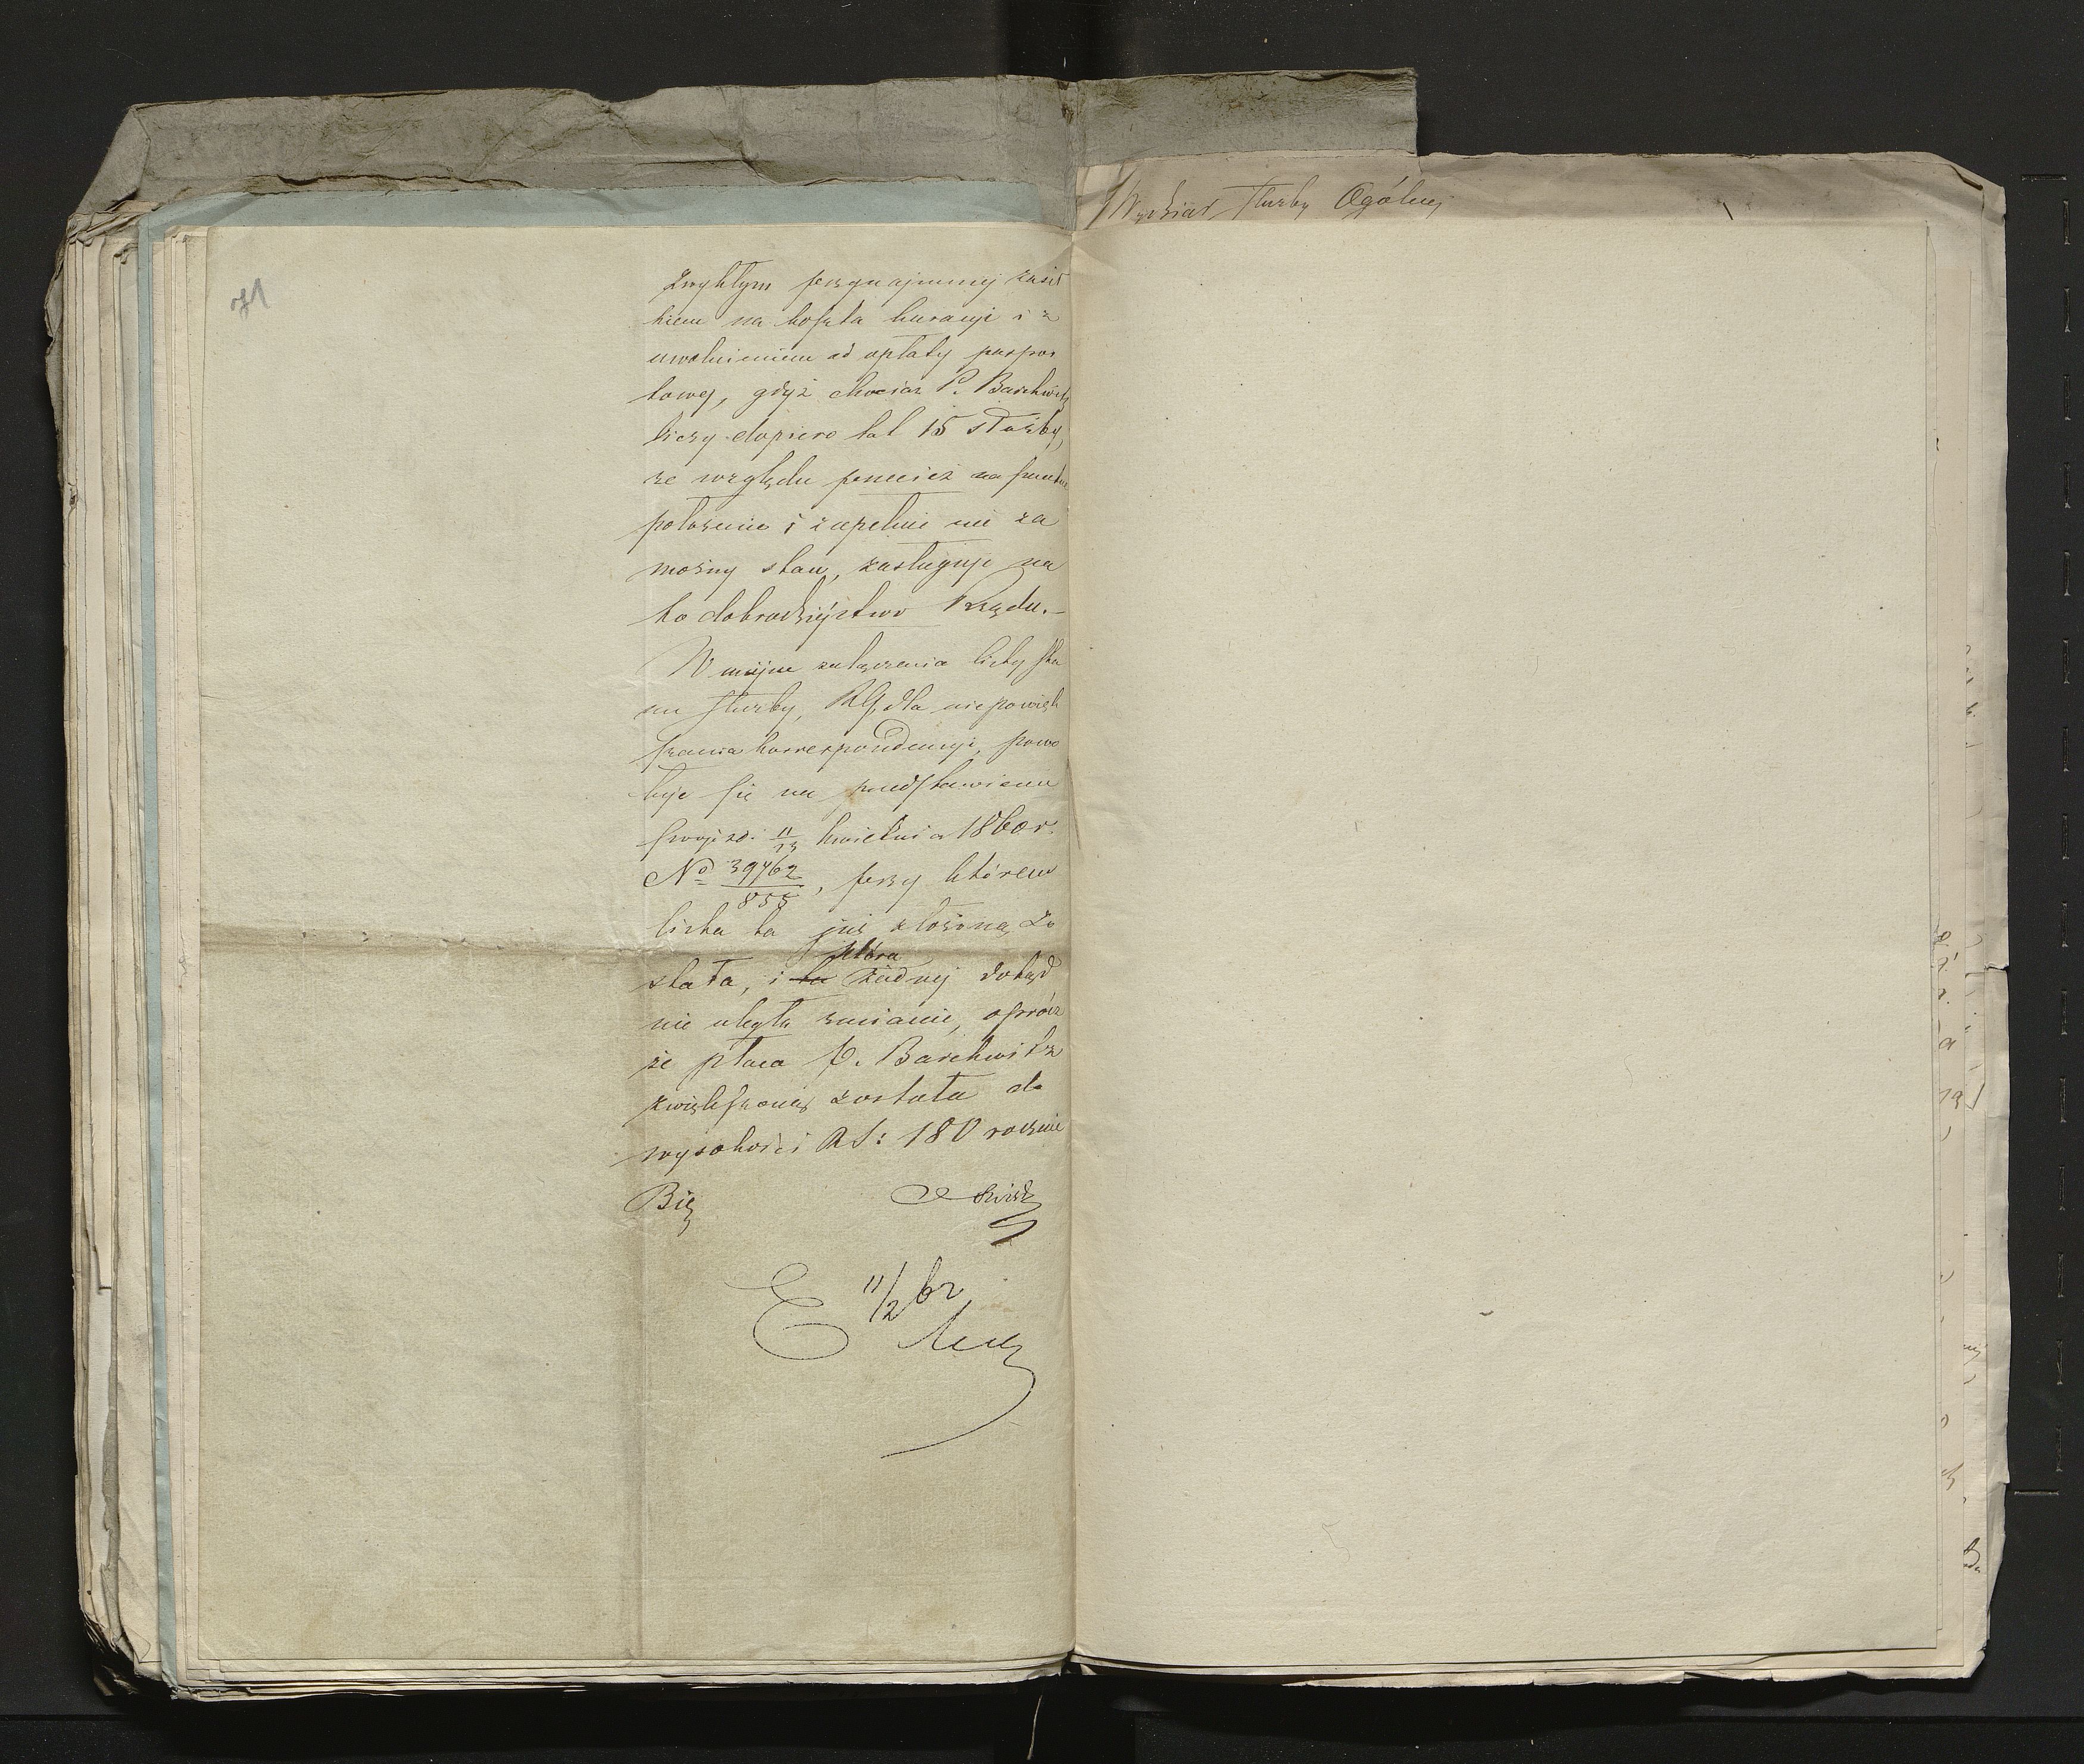 71
zwykłym przynajmniej zasił
kiem na koszta kuracyi i z
uwolnieniem od opłaty paszpor
towej, gdyż chociaż P. Barchwitz
liczy dopiero lat 15 służby,
ze względu przecież na
położenie i zupełnie nie za
możny stan, zasługuje na
to dobrodziejstwo Rządu.-
W miejsce załączenia listy sta
nu służby, RG. dla niepowięk
szania korrespondencyi, powo
łuje się na przedstawienie
swoje z d. 11/23 kwietnia 1860 r.
No 39762/855, przy którem
lista ta już złożoną zo
stała, i ta która żadnej dotąd
nie uległa zmianie, oprócz
że płaca P. Barchwitz
zwiększoną została do
wysokości RS: 180 rocznie
11/2 62
Wydział służby Ogólnej